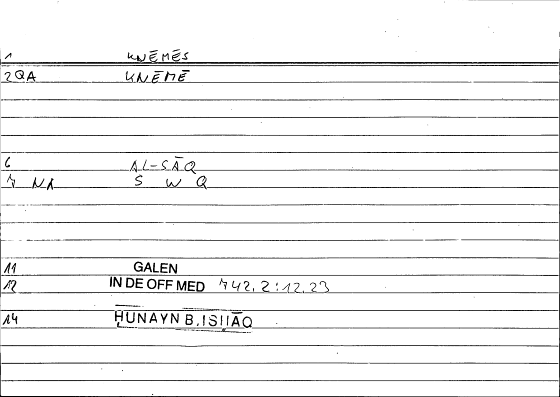 1 KNĒMĒS
2 QA KNĒMĒ
6 AL-SĀQ
7 NA S W Q
11 GALEN
12 IN DE OFF MED 742,2:12.23
14 ḤUNAYN B.ISḤĀQ